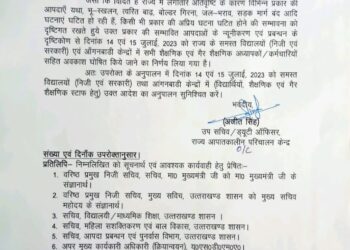 जैसा कि विदित है राज्य में लगातार अतिवृष्टि के कारण विभिन्न प्रकार की
आपदाएँ यथा, भू-स्खलन, त्वरित बाढ़, बोल्डर गिरना, जल-भराव, सड़क मार्ग बंद आदि
घटनाएं घटित हो रही हैं, किसी भी प्रकार की अप्रिय घटना घटित होने की सम्भावना को
दृष्टिगत रखते हुये उक्त प्रकार की सम्भावित आपदाओं के न्यूनीकरण एवं प्रबन्धन के
दृष्टिकोण से दिनांक 14 एवं 15 जुलाई, 2023 को राज्य के समस्त विद्यालयों (निजी एवं
सरकारी) एवं आंगनबाडी केन्द्रों में सभी शैक्षणिक एवं गैर शैक्षणिक अध्यापकों/कर्मचारियों
सहित अवकाश घोषित किये जाने का निर्णय लिया गया है।
अतः उपरोक्त के अनुपालन में दिनांक 14 एवं 15 जुलाई, 2023 को समस्त
विद्यालयों (निजी एवं सरकारी) तथा आंगनबाडी केन्द्रों में (विद्यार्थियों, शैक्षणिक एवं गैर
शैक्षणिक स्टाफ हेतु) उक्त आदेश का अनुपालन सुनिश्चित करें।
भवदीय,
(अजीत सिंह)
उप सचिव/ड्यूटी ऑफिसर,
राज्य आपातकालीन परिचालन केन्द्र
संख्या एवं दिनाँक उपरोक्तानुसार।
प्रतिलिपि- निम्नलिखित को सूचनार्थ एवं आवश्यक कार्यवाही हेतु प्रेषितः-
1. वरिष्ठ प्रमुख निजी सचिव, मा0 मुख्यमंत्री जी को मा0 मुख्यमंत्री जी के
संज्ञानार्थ।
2. वरिष्ठ प्रमुख निजी सचिव, मुख्य सचिव, उत्तराखण्ड शासन को मुख्य सचिव
महोदय के संज्ञानार्थ।
3. सचिव, विद्यालयी/माध्यमिक शिक्षा, उत्तराखण्ड शासन।
4. सचिव, महिला सशक्तिकरण एवं बाल विकास, उत्तराखण्ड शासन।
5. सचिव आपदा प्रबन्धन एवं पुनर्वास विभाग, उत्तराखण्ड शासन।
6. अपर मुख्य कार्यकारी अधिकारी (क्रियान्वयन),